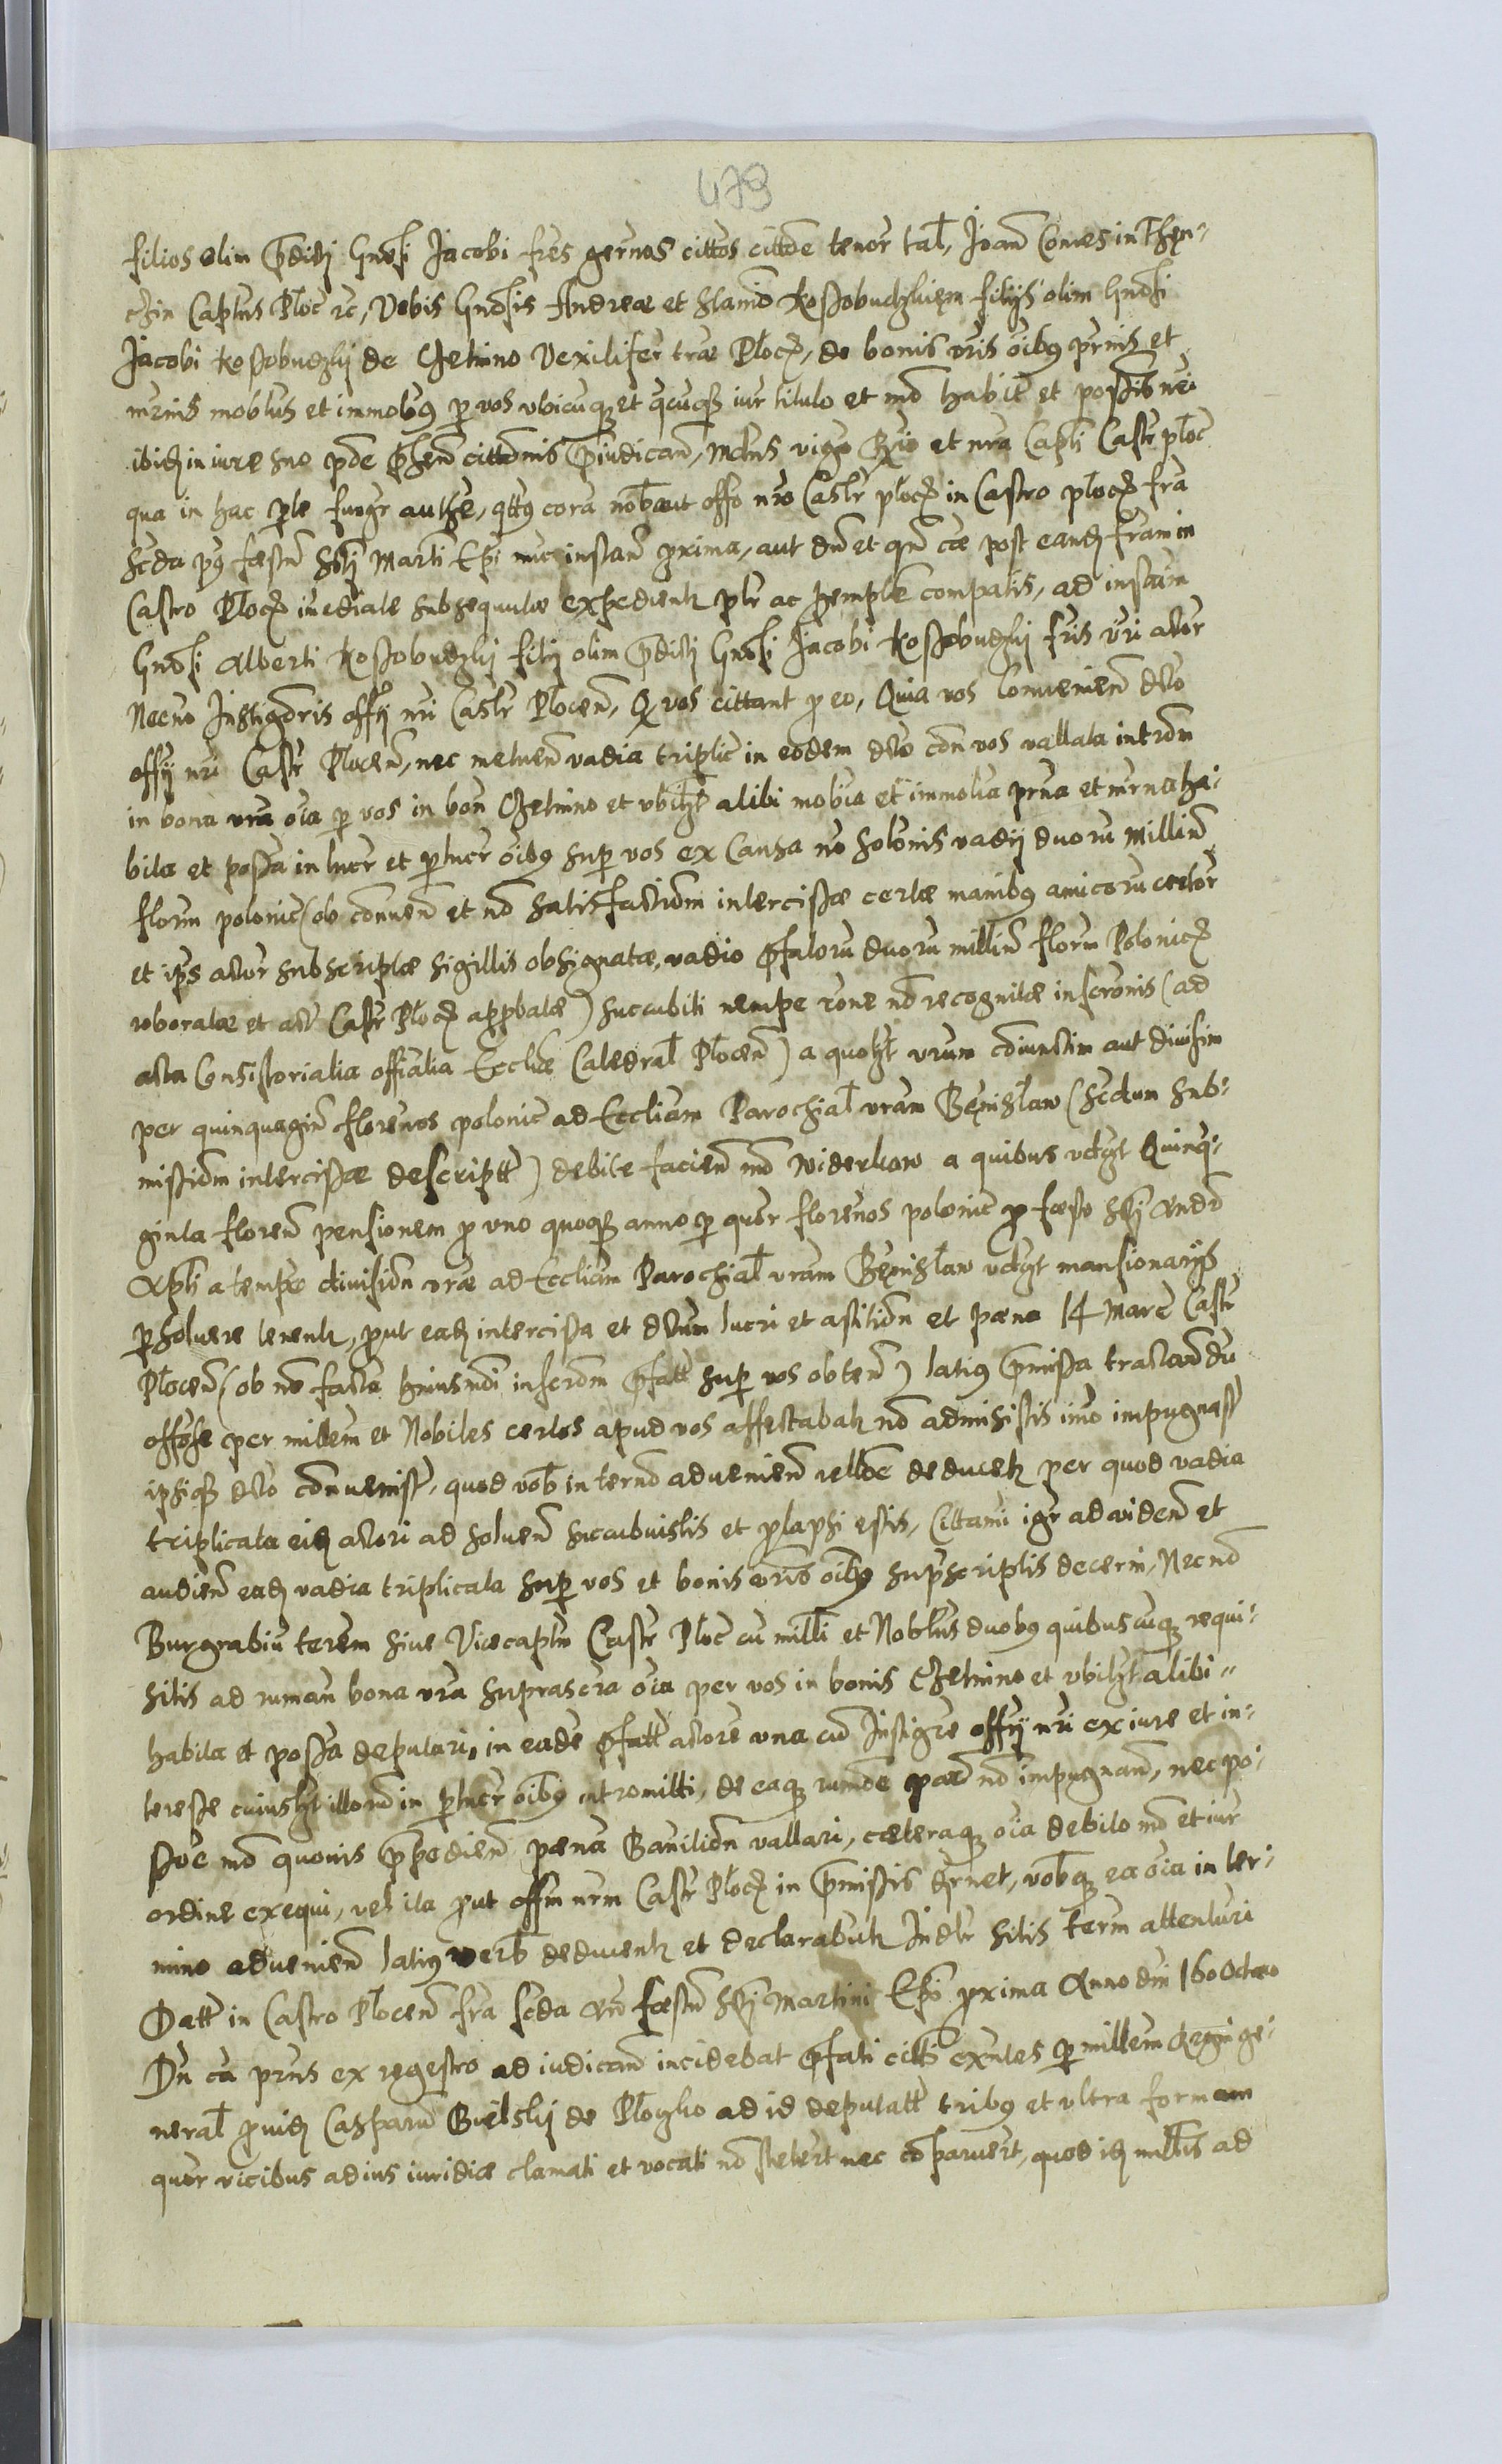 478
filios olim p̄dicti Gnosi Jacobi fres germos cittos cittōne tenor tal, Joan̄ Comes in Thęn-
czin Captus Płoc zc, Vobis Gnosis Andreæ et Stanīo Kossobudzkięm filijs olim Gnosi
Jacobi Kossobudzkij de Chetnino Vexilifer træ Płoc, de bonis vris oibꝯ prnis et
mrnis moblus et immobꝯ p vos vbicuqꝫ et qcuqꝫ iur titulo et mō habit et possis nrī
ibidꝫ in iure suo pde p̄hen̄ cittōnis p̄iudican̄, Mdus vigō et nrā Capli Castr płoc
qua in hac pte fungr authe, qttꝯ cora nob aut offo nro Castr płoc in Castro płoc fra
scda pꝯ fæstū Scti Marti Epi nuc instan̄ proxima, aut dū et qn̄ cæ post eandꝫ fram in
Castro Płoc imediate subsequutæ expedientꝫ plr ac pemptē compatis, ad instam
Gnosi Alberti Kossobudzkij filij olim p̄dicti Gnosi Jacobi Kossobudzkij fris vri actor
Necno Instigōris offij nri Castr Płocen̄, Q vos cittant p eo, Quia vos Conuenien̄ dcto
offij nri Castr Płocen̄, nec metuen̄ vadia triplic in eodem dcto con̄ vos vallata introm
in bona vrā oia p vos in bon̄ Chetnino et vbilꝫt alibi mobia et immobia prna et mrna ha-
bita et possa in lucr et plucr oibꝯ sup vos ex Causa no solōnis vadij duoru milliū
florm polonic (ob conuen̄ et nō satisfactiom intercissæ certæ manibꝯ amicoru certor
et ips actor subscriptæ sigillis obsignatæ, vadio p̄fatoru duoru milliū florm Polonic
roboratæ et act Castr Płoc approbatæ) succubiti nempe rōne nō recognitæ inscrōnis (ad
acta Consistorialia officialia Eccliæ Catedral Płocen̄) a quolꝫt vrum coniunctim aut diuisim
per quinquagin̄ florenos polonic ad Eccliam Parochial vram Bęnisław (scdum sub-
missiom intercissæ descriptæ) debite facien̄ mō widerkow a quibus vdꝫt Quinq-
ginta floren̄ pensionem p vno quoqꝫ anno p quor florenos polonic p fæsto Scti Andr
Apli a tempe diuision̄ vræ ad Eccliam Parochial vram Bęnisław vdꝫt mansionarijs
psoluere tenentꝫ, put eadꝫ intercissa et dctum lucri et astition̄ et pæna 14 Marc Castr
Płocen̄ (ob no facta huiusmōi inscrōm p̄fatt sup vos obten̄) latiꝯ p̄missa tractan̄ du
offose per militem et Nobiles certos apud vos affectabatꝫ nō admisistis imo impugnast
ipsiqꝫ dcto conuenist, quod vob in termō aduenien̄ vellde deducetꝫ per quod vadia
triplicata eidꝫ actori ad soluen̄ succubuistis et plapsi estis, Cittami igr ad viden̄ et
audien̄ eadꝫ vadia triplicata sup vos et bonis vris oibꝯ supscriptis decerni, Necnō
Burgrabiū terem siue Vicecaptm Castr Płoc cu milli et Noblus duobꝯ quibuscuqꝫ requi-
sitis ad ruman̄ bona vra suprascra oia per vos in bonis Chetnino et vbilꝫt alibi
habita et possa deputari, in eade p̄fatt actore vna cū Instigre offij nri ex iure et in-
teresse cuiuslꝫt illorū in plucr oibꝯ intromitti, de eaqꝫ rumōe pæ nō impugnan̄, nec po-
ssoe mō quonis p̄pedien̄ pæna Banition̄ vallari, cæteraqꝫ oia debito mō et iur
ordine exequi, vel ita put offm nrm Castr Płoc in p̄missis drnet, vobqꝫ ea oia in ter-
mino aduenien̄ latiꝯ verb deducentꝫ et declarabutꝫ Iudlr sitis term attenturi
Datt in Castro Płocen̄ fra scda an̄ fæstū Scti Martini Epi proxima Anno dm̄ 160 Octauo
Dū ca prns ex regestro ad iudican̄ incidebat p̄fati citti exntes p militem Regni ge-
neral puidꝫ Casparū Bielskj de Płoczko ad id deputatt tribꝯ et vltra formam
quor vicibus ad ius iuridicæ clamati et vocati nō stetert nec coparuert, quod idꝫ millis ad